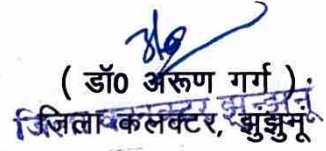 ( डॉ0 अरूण गर्ग )
जिला कलक्टर, झुझुनू